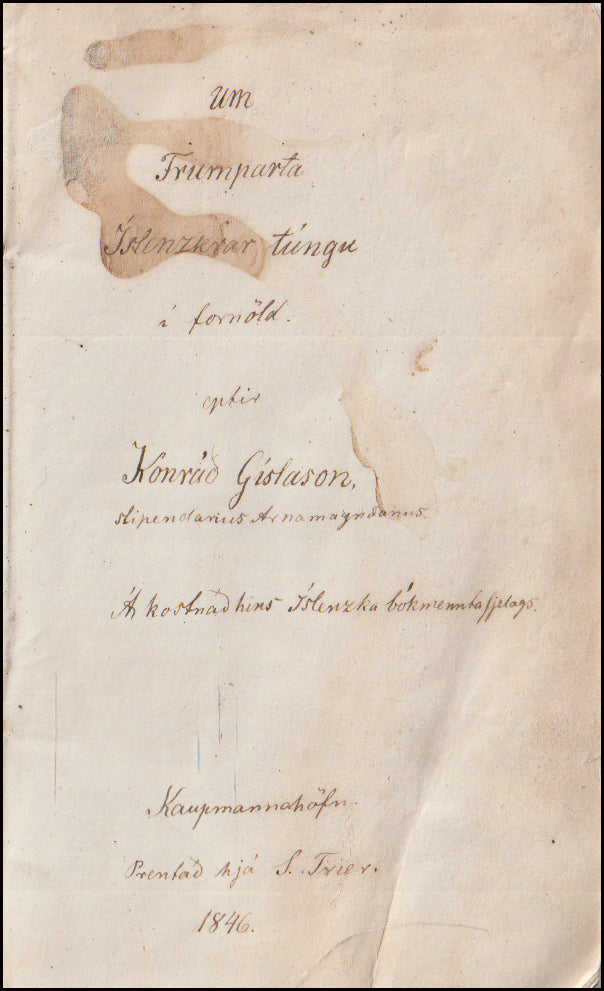 um
Frumparta
Íslenzkrar túngu
í fornöld.
eptir
Konráð Gíslason,
stipendarius Arnamagnæanus.
Á kostnað hins Íslenzka bókmenntafjelags.
Kaupmannahöfn.
Prentað hjá S. Trier.
1846.